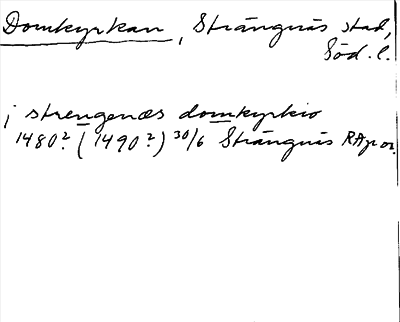 Domkyrkan, Strängnäs stad,
Söd. l.
i strengenæs domkyrkio
1480? (1490?) 30/6 Strängnäs RAp or.